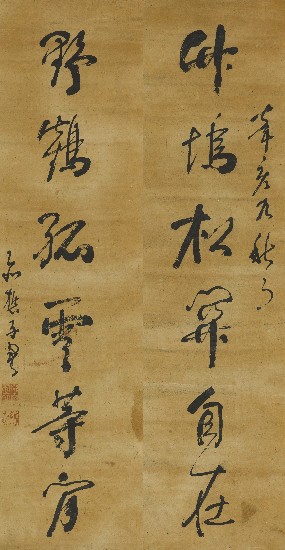 辛亥九秋
竹塢松關自在
野鶴孤雲等閒